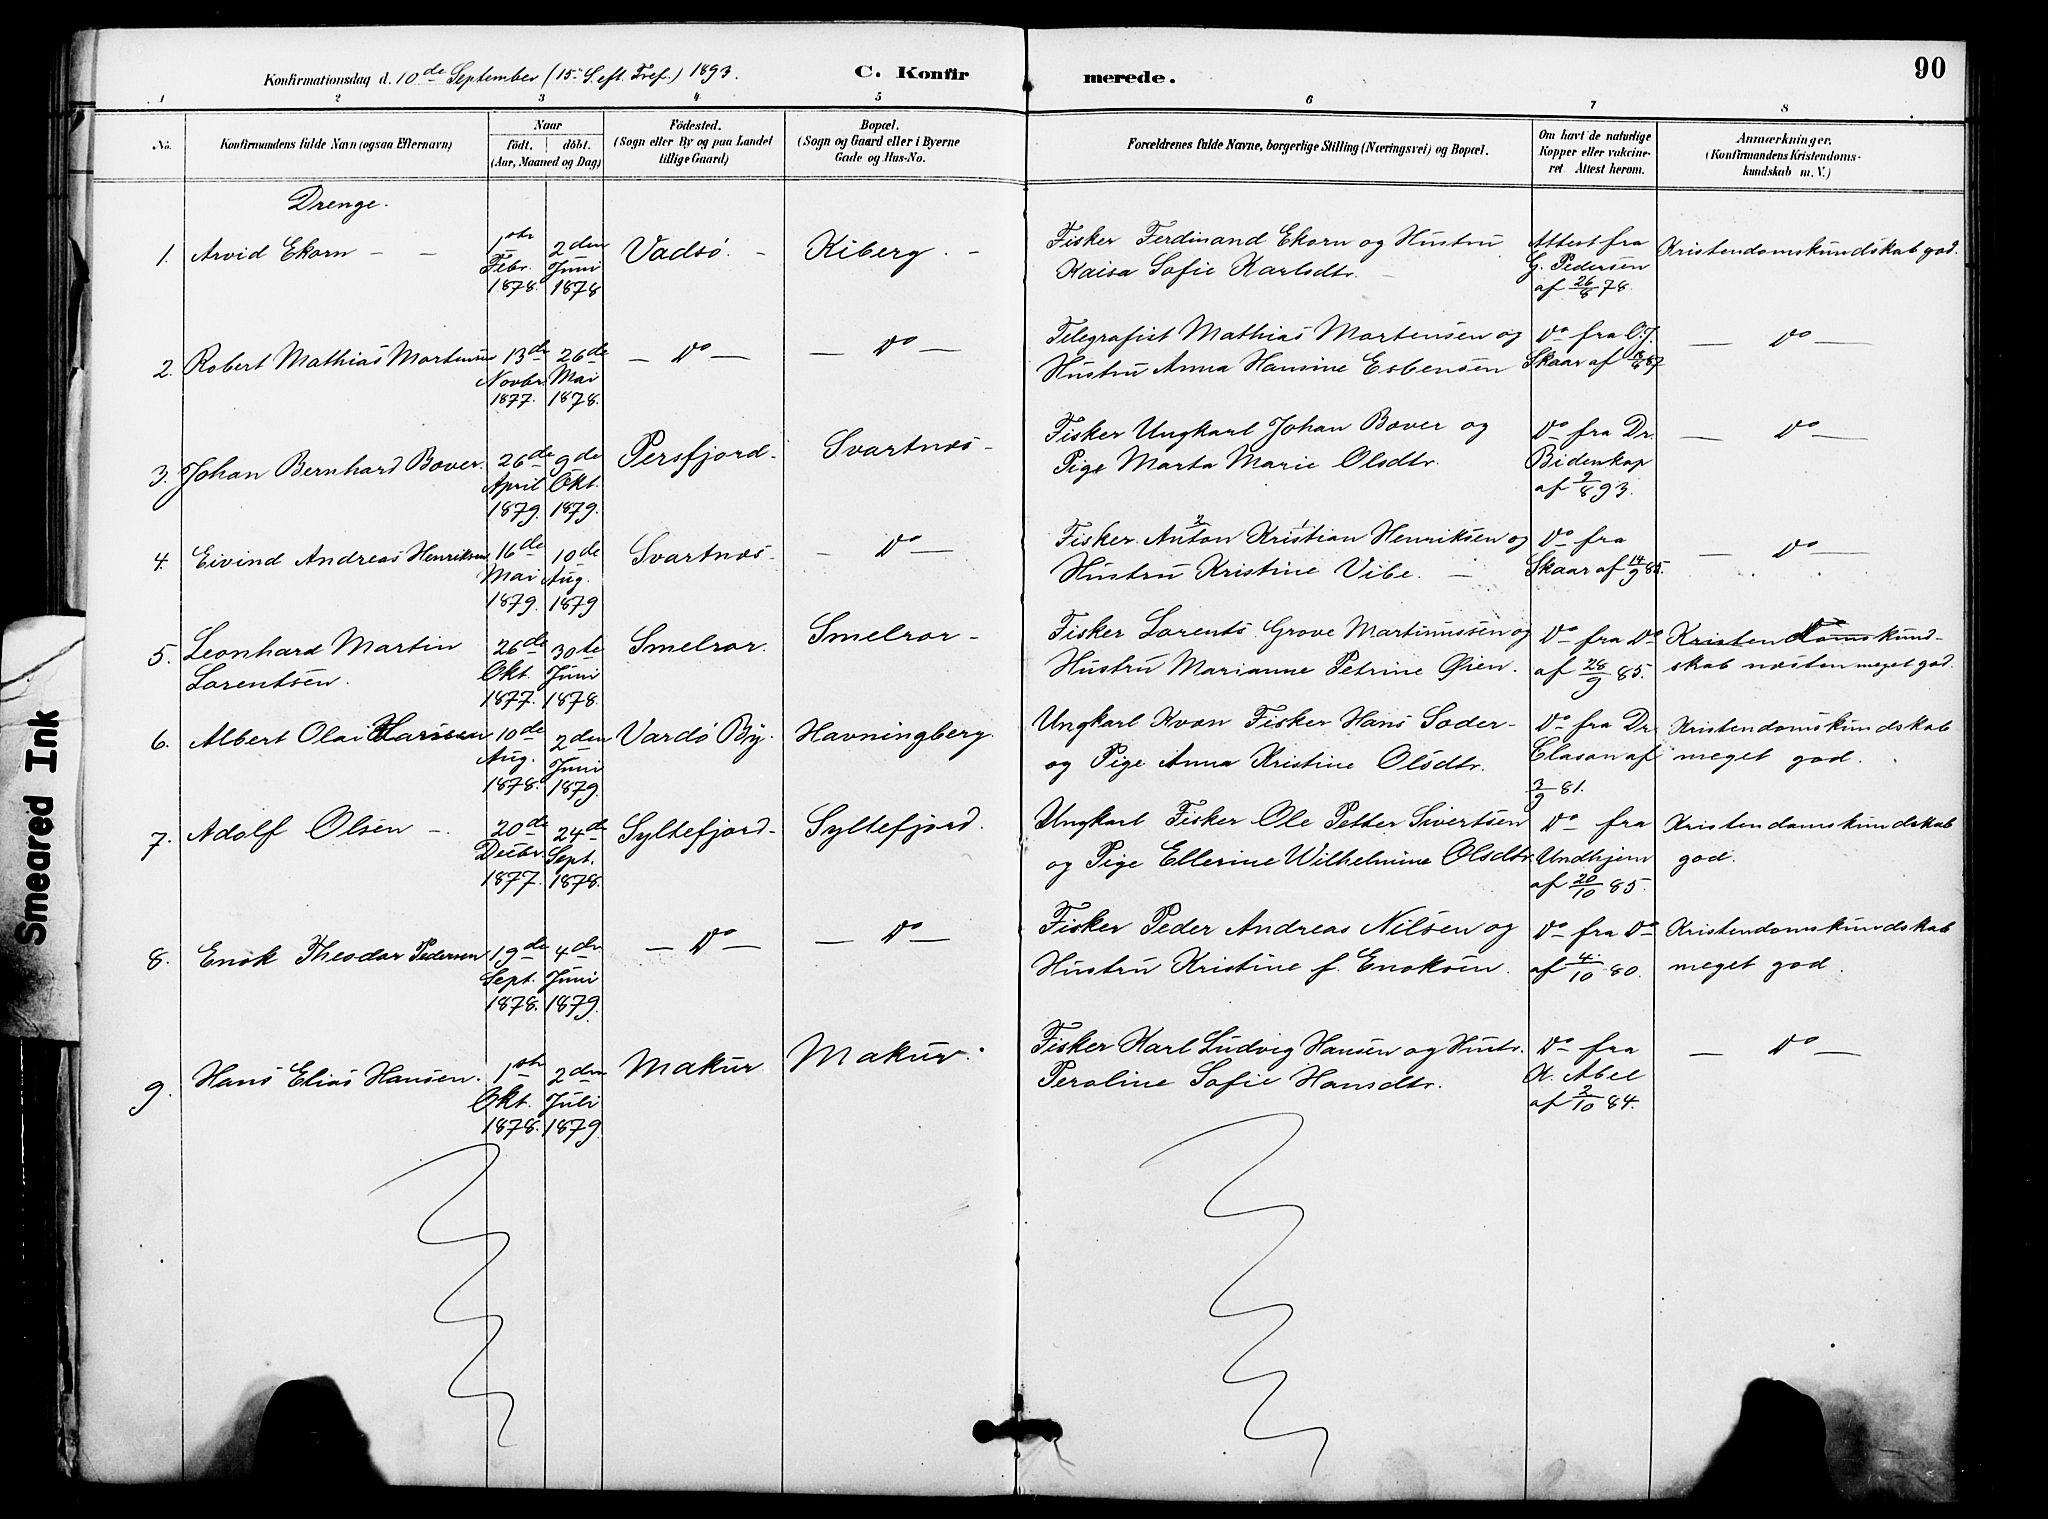 Konfirmationsdag d. 10de September (15 S. eft. Tref.) 1893. C. Konfir merede. 90
1 2 3 4 5 6 7 8
No. Konfirmandens fulde Navn (ogsaa Efternavn) Naar Födt. döbt. (Aar, Maaned og Dag) Födested. (Sogn eller By og paa Landet tillige Gaard) Bopæl. (Sogn og Gaard eller i Byerne Gade og Hus-No. Forældrenes fulde Navne, borgerlige Stilling (Næringsvei) og Bopæl. Om havt de naturlige Kopper eller vakcineret Attest herom. Anmærkninger. (Konfirmandens Kristendomskundskab m. V.)
Drenge.
1. Arvid Ekorn - - 1ste Febr. 1878. 2den Juni 1878 Vadsö. - Kiberg. - Fisker Ferdinand Ekorn og Hustru
Kaisa Sofie Karlsdtr. - Attest fra G. Pedersen af 26/8 78. Kristendomskundskab god.
2. Robert Mathias Mortensen 13de Novbr. 1877. 26de Mai 1878. - Do - - Do - Telegrafist Mathias Mortensen og
Hustru Anna Hansine Esbensen Do fra O. J. Skaar af - Do -
3. Johan Bernhard Bover. 26de April 1879. 9de Okt. 1879. Persfjord. Svartnæs - Fisker Ungkarl Johan Bover og
Pige Marta Marie Olsdtr. Do fra Dr. Bidenkap af 2/8 93. - Do -
4. Eivind Andreas Henriksen 16de Mai 1879. 10de Aug. 1879 Svartnæs - - Do - Fisker Anton Kristian Henriksen og
Hustru Kristine Vibe. - Do fra Skaar af 14/9 85. - Do -
5. Leonhard Martin
Lorentsen. 26de Okt. 1877. 30te Juni 1878. Smelror. Smelror - Fisker Lorents Grove Martinussen og
Hustru Marianne Petrine Øien. Do fra Do af 28/9 85. Kristendomskundskab næsten meget god.
6. Albert Olai Hansen 10de Aug. 1878. 2den Juni 1879. Vardö By. Havningberg. Ungkarl Kvæn Fisker Hans Soder-
og Pige Anna Kristine Olsdtr. Do fra Dr. Clason af 2/9 81. Kristendomskundskab meget god.
7. Adolf Olsen - 20de Decbr. 1877. 24de Sept. 1878. Syltefjord - Syltefjord. Ungkarl Fisker Ole Petter Sivertsen
og Pige Ellerine Wilhelmine Olsdtr. Do fra Undhjem af 20/10 85. Kristendomskundskab god.
8. Enok Theodor Pedersen 19de Sept. 1878. 4de Juni 1879. - Do - - Do - Fisker Peder Andreas Nilsen og
Hustru Kristine f. Enoksen. Do fra Do af 4/10 80. Kristendomskundskab meget god.
9. Hans Elias Hansen. 1ste Okt. 1878. 2den Juli 1879. Makur Makur. Fisker Karl Ludvig Hansen og Hustr.
Peroline Sofie Hansdtr. Do fra K. Abel af 2/10 84. - Do -
Smeared Ink